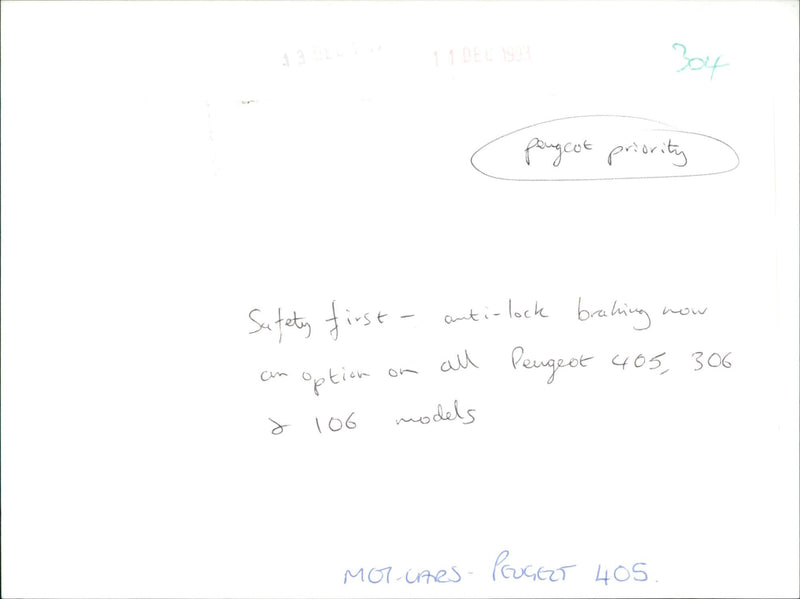 13 DEC
11 DEC 1993
304
peugeot priority
Safety first - anti-lock braking now
an option on all Peugeot 405, 306
& 106 models
MOT-CARS- PEUGEOT 405.